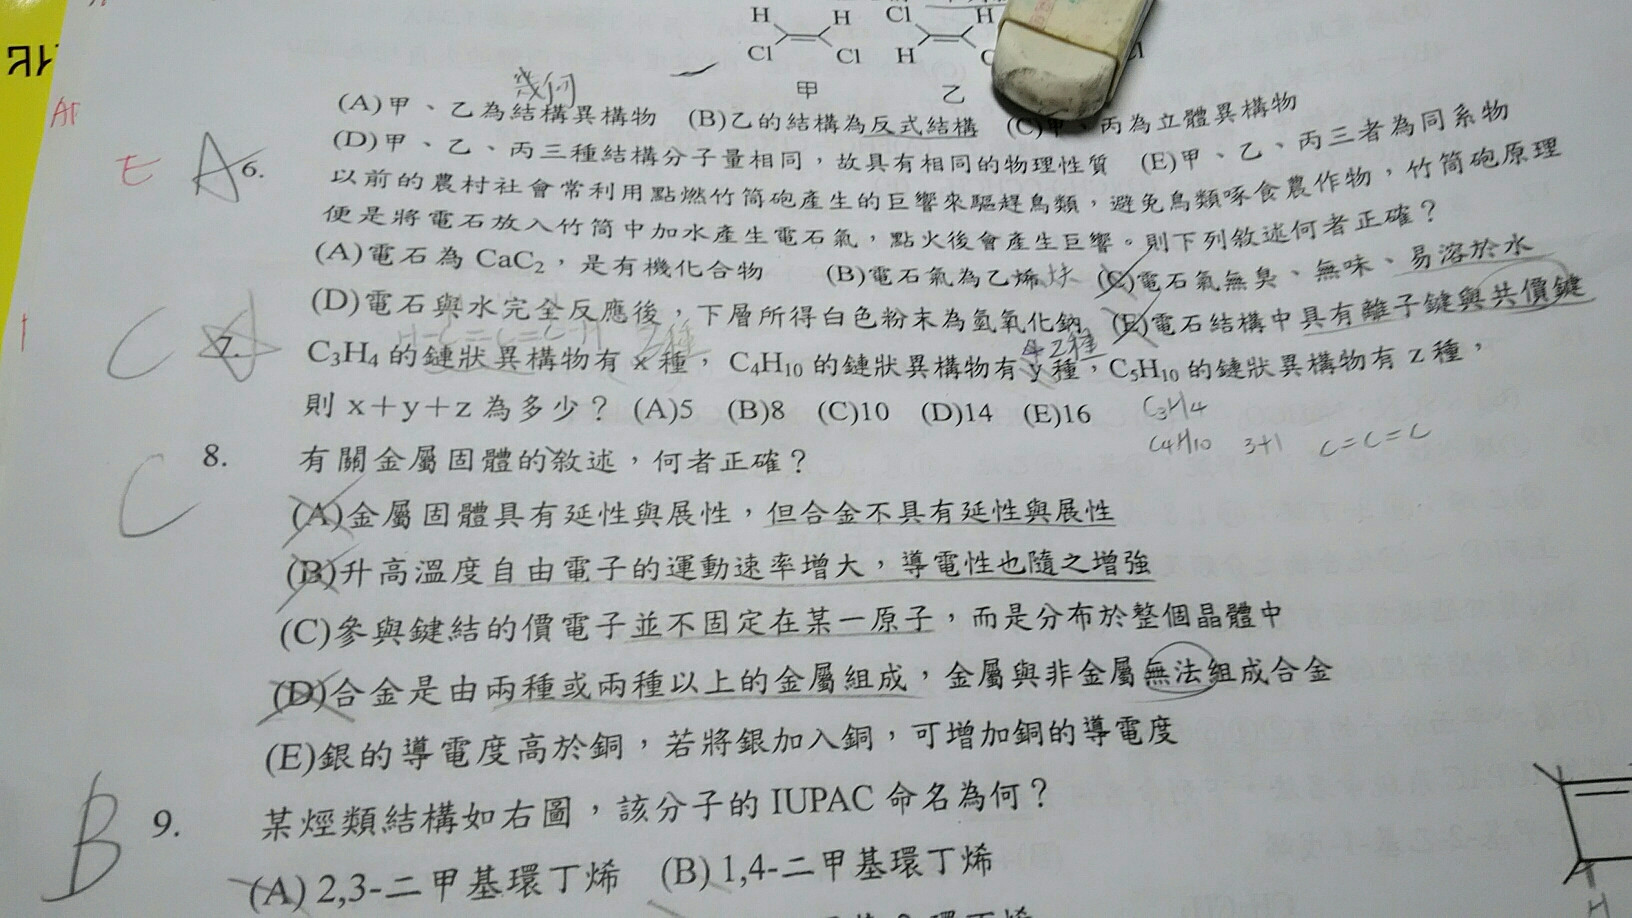 H H Cl H
Cl Cl H
甲 乙
幾何
(A)甲、乙為結構異構物 (B)乙的結構為反式結構 (C)甲、丙為立體異構物
(D)甲、乙、丙三種結構分子量相同，故具有相同的物理性質 (E)甲、乙、丙三者為同系物
E A 6. 以前的農村社會常利用點燃竹筒砲產生的巨響來驅趕鳥類，避免鳥類啄食農作物，竹筒砲原理
便是將電石放入竹筒中加水產生電石氣，點火後會產生巨響。則下列敘述何者正確？
(A)電石為 CaC₂，是有機化合物 (B)電石氣為乙烯 炔 (C)電石氣無臭、無味、易溶於水
(D)電石與水完全反應後，下層所得白色粉末為氫氧化鈉 (E)電石結構中具有離子鍵與共價鍵
H-C=C=C-H 2種 2種
C 7. C₃H₄ 的鏈狀異構物有 x 種， C₄H₁₀ 的鏈狀異構物有 y 種，C₅H₁₀ 的鏈狀異構物有 z 種，
則 x＋y＋z 為多少？ (A)5 (B)8 (C)10 (D)14 (E)16 C₃H₄
C₄H₁₀ 3+1 C=C=C
C 8. 有關金屬固體的敘述，何者正確？
(A)金屬固體具有延性與展性，但合金不具有延性與展性
(B)升高溫度自由電子的運動速率增大，導電性也隨之增強
(C)參與鍵結的價電子並不固定在某一原子，而是分布於整個晶體中
(D)合金是由兩種或兩種以上的金屬組成，金屬與非金屬無法組成合金
(E)銀的導電度高於銅，若將銀加入銅，可增加銅的導電度
B 9. 某烴類結構如右圖，該分子的 IUPAC 命名為何？
(A) 2,3-二甲基環丁烯 (B) 1,4-二甲基環丁烯
H